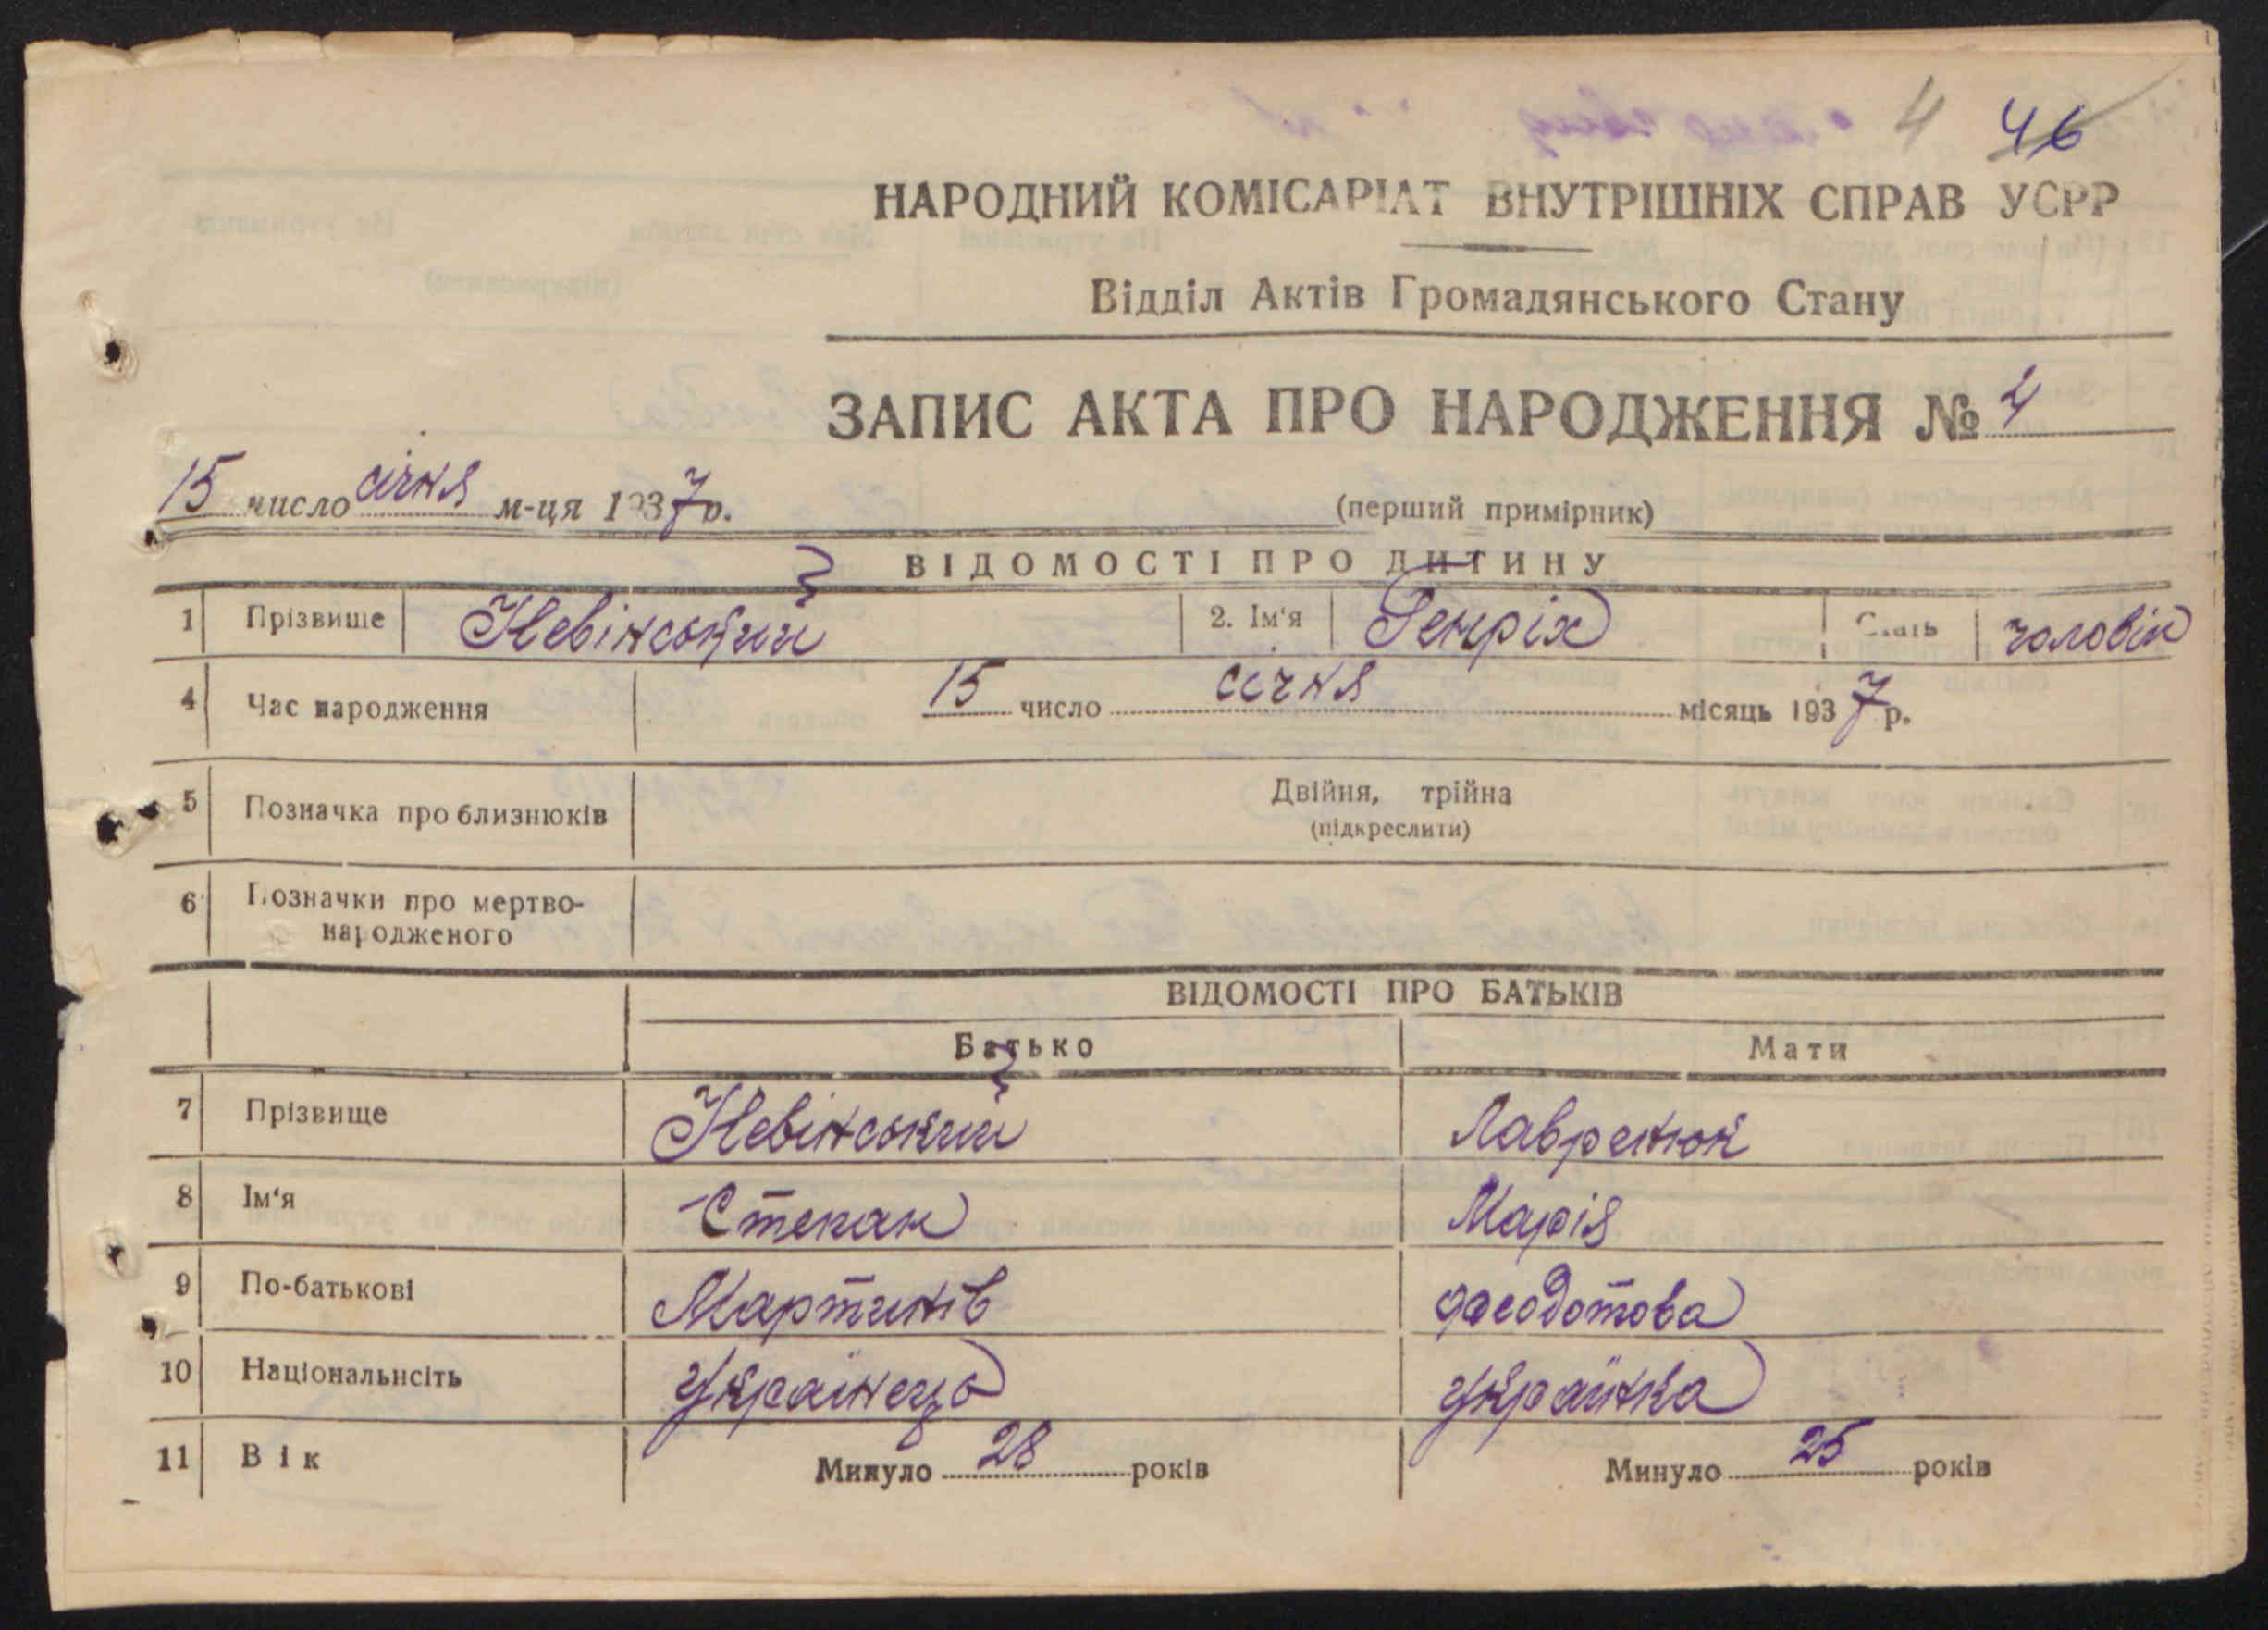 4 46
НАРОДНИЙ КОМІСАРІАТ ВНУТРІШНІХ СПРАВ УСРР
Відділ Актів Громадянського Стану
ЗАПИС АКТА ПРО НАРОДЖЕННЯ № 4
15 число січня м-ця 1937 р.
(перший примірник)
ВІДОМОСТІ ПРО ДИТИНУ
1 Прізвище Невінський 2. Ім'я Генріх Стать чоловік
4 Час народження 15 число січня місяць 1937 р.
5 Позначка про близнюків Двійня, трійна
(підкреслити)
6 Позначки про мертво-
народженого
ВІДОМОСТІ ПРО БАТЬКІВ
Батько Мати
7 Прізвище Невінський Лавренюк
8 Ім'я Степан Марія
9 По-батькові Мартинів Феодотова
10 Національнсіть Українець Українка
11 Вік Минуло 28 років Минуло 25 років